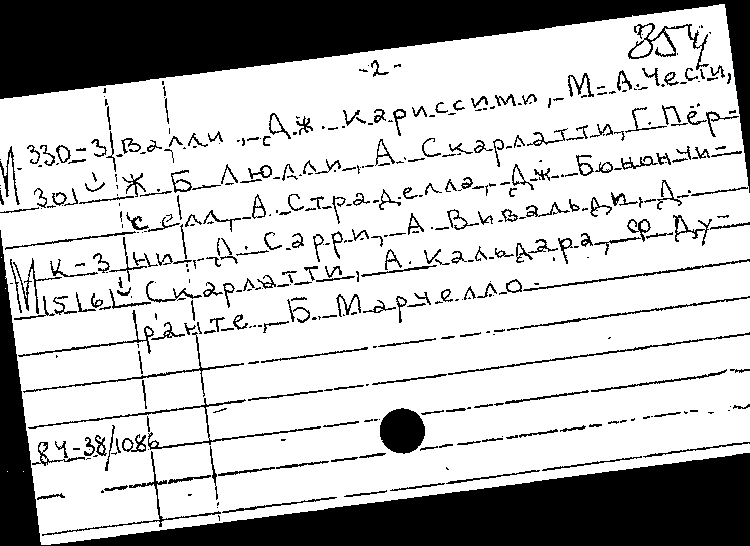 354
-2-
М 330-3 валли, Дж. Кариссими, М-А. Чести,
301 Ж. Б Люлли, А. Скарлатти, Г. Пёр-
селл, А. Страделла, Дж Бонончи-
М К-3 ни, Д. Сарри, А. Вивальди, Д.
15161 Скарлатти, А. Кальдара, Ф Ду-
ранте, Б. Марчелло.
84-38/1086